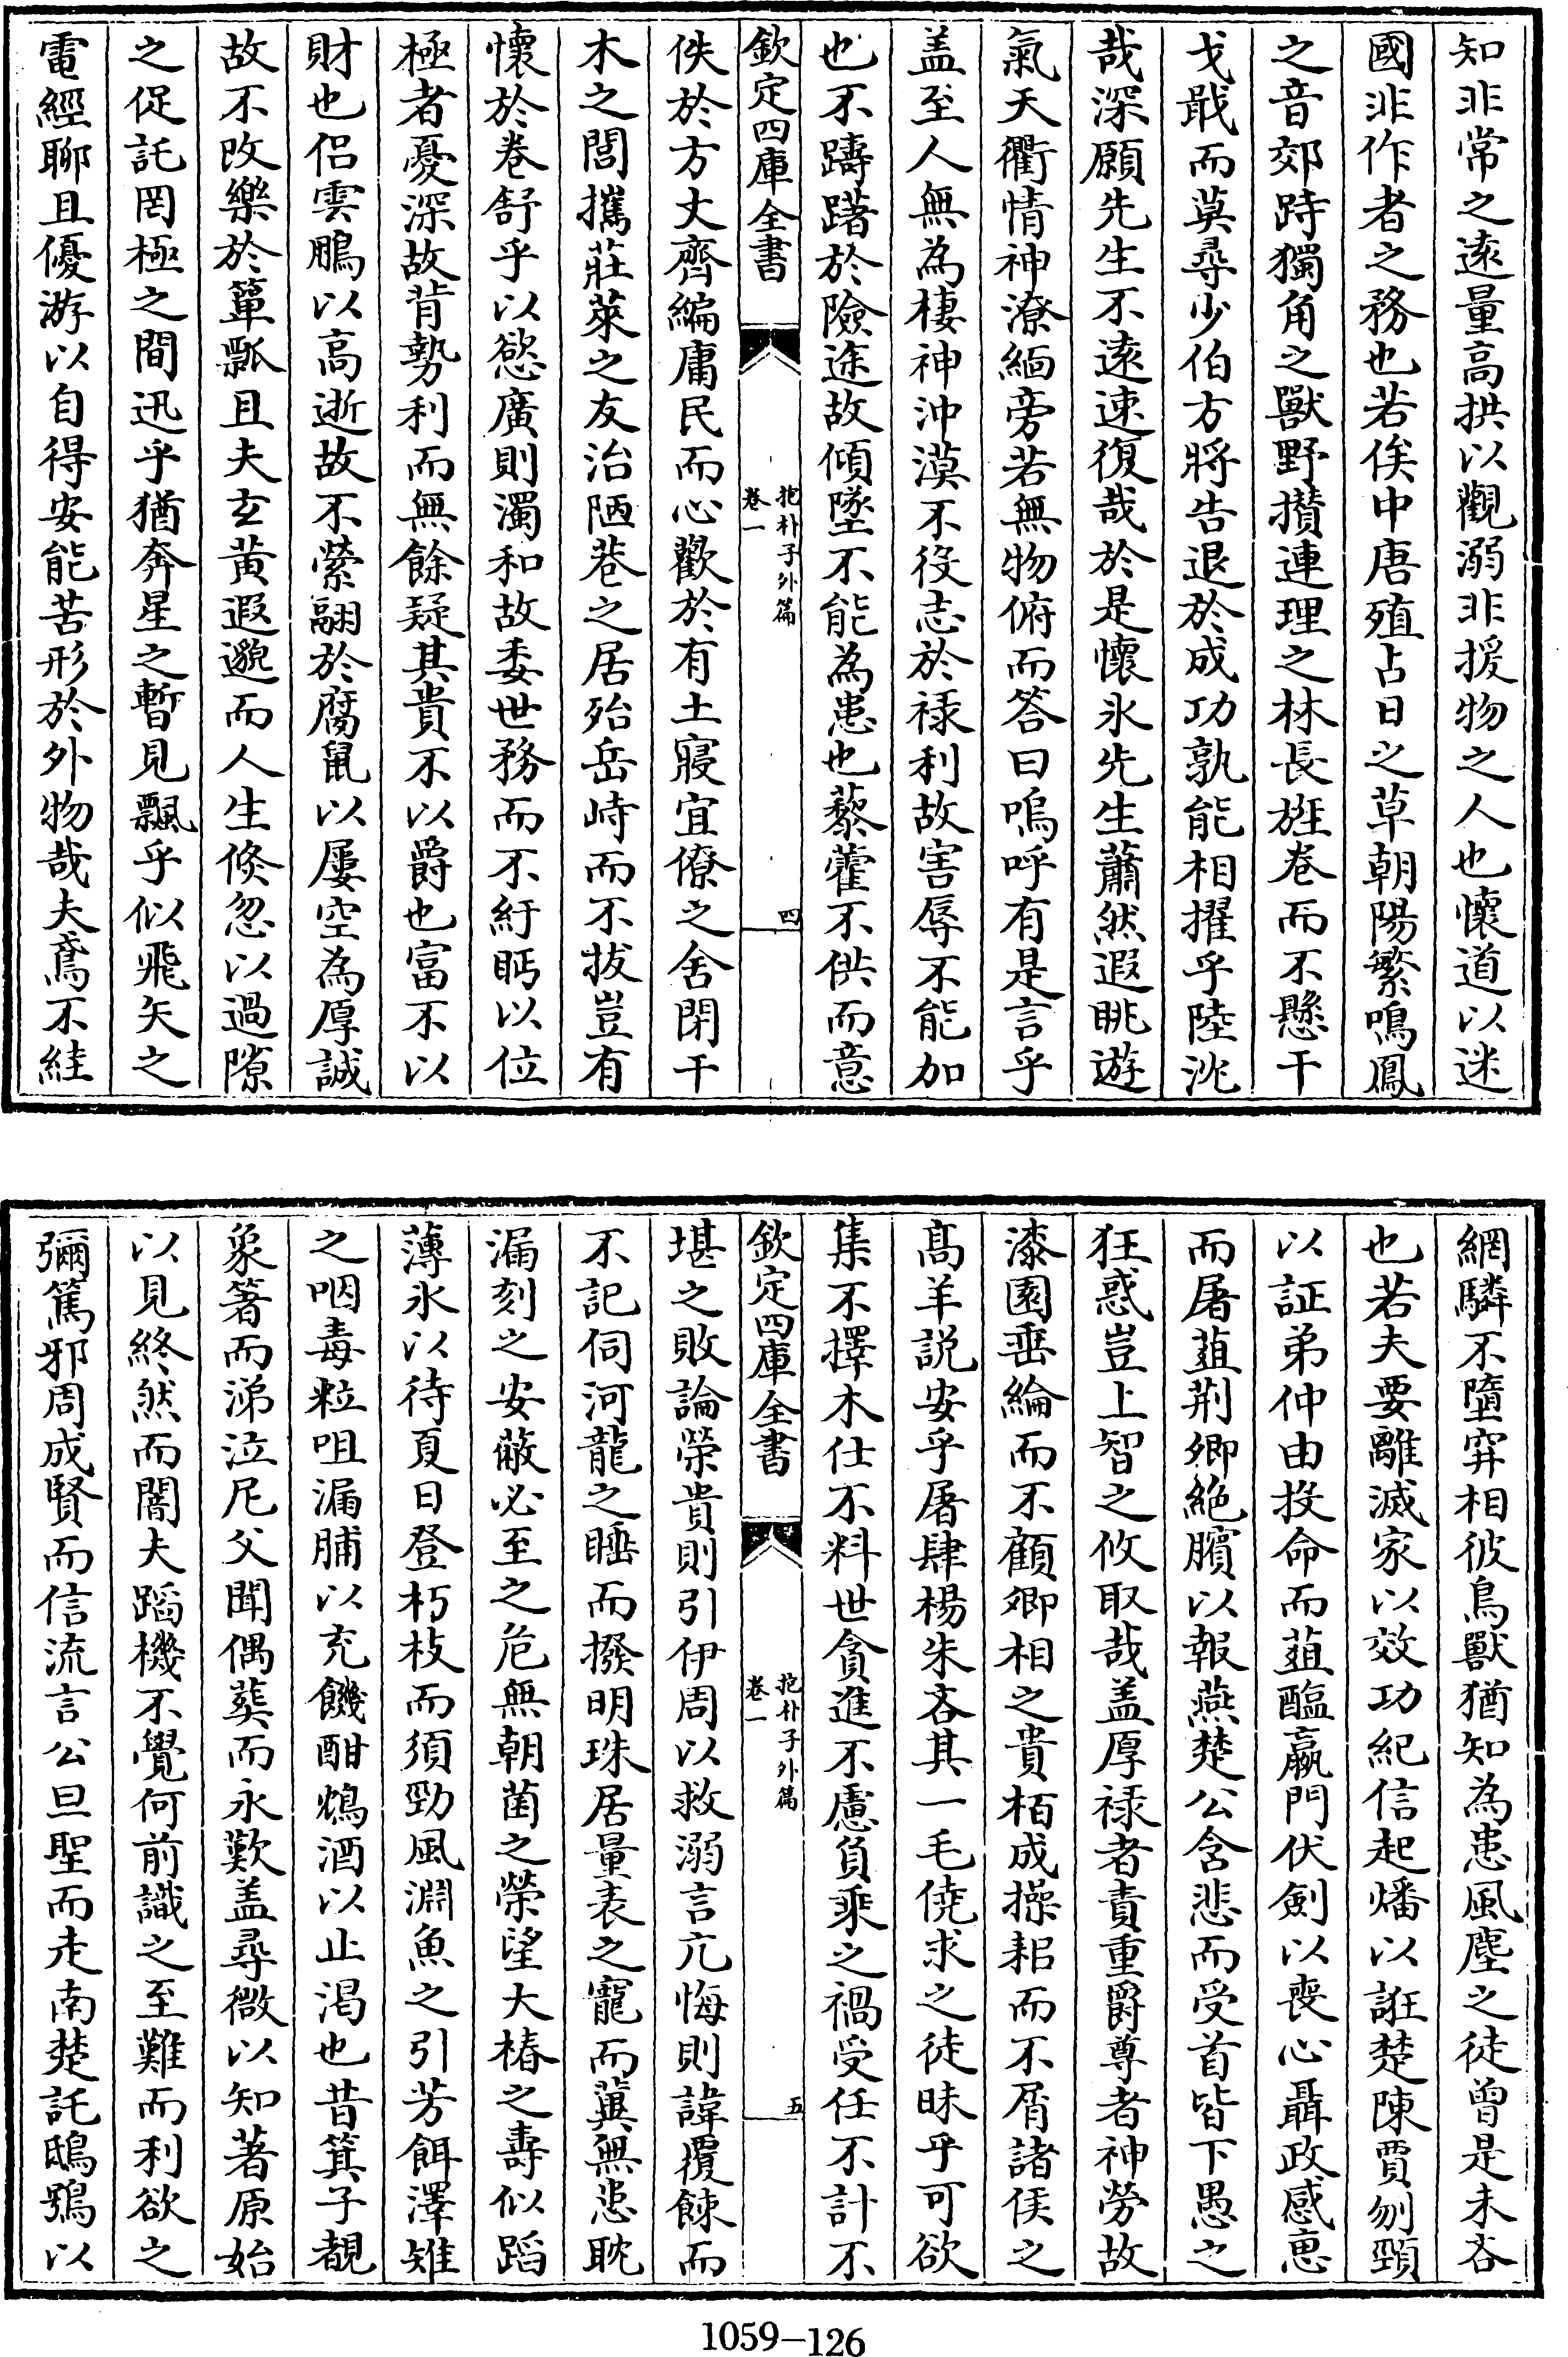 知非常之遠量高拱以觀溺非援物之人也懷道以迷
國非作者之務也若俟中唐殖占日之草朝陽繁鳴鳳
之音郊跱獨角之獸野攢連理之林長旌卷而不懸干
戈戢而莫尋少伯方將告退於成功孰能相擢乎陸沈
哉深願先生不遠速復哉於是懷氷先生蕭然遐眺遊
氣天衢情神潦緬旁若無物俯而答曰嗚呼有是言乎
盖至人無為棲神沖漠不役志於禄利故害辱不能加
也不躊躇於險途故傾墜不能為患也藜藿不供而意
欽定四庫全書
抱朴子外篇
卷一
四
佚於方丈齊編庸民而心歡於有土寢宜僚之舍閉干
木之閭攜莊萊之友治陋巷之居殆岳峙而不拔豈有
懷於卷舒乎以慾廣則濁和故委世務而不紆眄以位
極者憂深故背勢利而無餘疑其貴不以爵也富不以
財也侶雲鵬以高逝故不縈翮於腐鼠以屢空為厚誠
故不改樂於簞瓢且夫玄黃遐邈而人生倏忽以過隙
之促託罔極之間迅乎猶奔星之暫見飄乎似飛矢之
電經聊且優游以自得安能苦形於外物哉夫鳶不絓
網驎不墮穽相彼鳥獸猶知為患風塵之徒曾是未吝
也若夫要離滅家以效功紀信赴燔以誑楚陳賈刎頸
以証弟仲由投命而葅醢嬴門伏劍以喪心聶政感惠
而屠葅荆卿絶臏以報燕楚公含悲而受首皆下愚之
狂惑豈上智之攸取哉盖厚禄者責重爵尊者神勞故
漆園垂綸而不顧卿相之貴栢成操耜而不屑諸侯之
髙羊説安乎屠肆楊朱吝其一毛僥求之徒昧乎可欲
集不擇木仕不料世貪進不慮負乘之禍受任不計不
欽定四庫全書
抱朴子外篇
卷一
五
堪之敗論榮貴則引伊周以救溺言亢悔則諱覆餗而
不記伺河龍之睡而撥明珠居量表之寵而冀無患耽
漏刻之安蔽必至之危無朝菌之榮望大椿之壽似蹈
薄氷以待夏日登朽枝而須勁風淵魚之引芳餌澤雉
之咽毒粒咀漏脯以充饑酣鴆酒以止渴也昔箕子覩
象箸而涕泣尼父聞偶葬而永歎盖尋微以知著原始
以見終然而闇夫蹈機不覺何前識之至難而利欲之
彌篤邪周成賢而信流言公旦聖而走南楚託鴟鴞以
1059-126